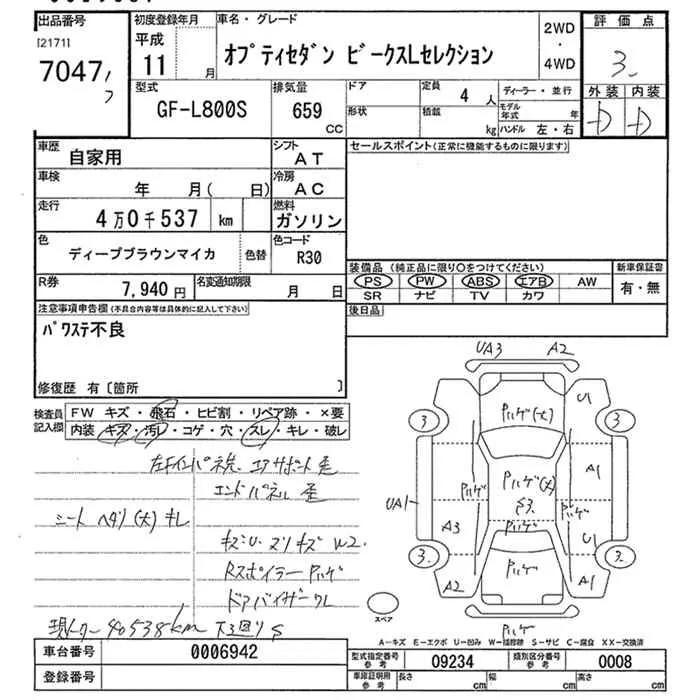 出品番号
[2171]
7047
初度登録年月
平成
11 月
車名・グレード
オプティセダン ビークスLセレクション
2WD
・
4WD
評価点
3
外装 内装
D D
型式
GF-L800S
排気量
659
CC
ドア
形状
定員
4 人
積載
kg
ディーラー・並行
モデル
年式 年
ハンドル 左・右
車歴
自家用
シフト
AT
車検
年 月( 日)
冷房
AC
走行
4万0千537 km
燃料
ガソリン
色
ディープブラウンマイカ
色替
色コード
R30
R券
7,940円
名変通知期限
月 日
セールスポイント(正常に機能するものに限ります)
装備品 (純正品に限り〇をつけてください)
PS PW ABS エアB AW
SR ナビ TV カワ
新車保証書
有・無
後日品
注意事項申告欄(不具合内容等は具体的に記入して下さい)
パワステ不良
修復歴 有〔箇所 〕
検査員
記入欄
FW キズ・飛石・ヒビ割・リペア跡・×要
内装 キズ・汚レ・コゲ・穴・スレ・キレ・破レ
エンドパネル 歪
シート ヘタリ(大) キレ
キズU.スリキズW2.
Rスポイラー Pハゲ
ドアバイザークレ
現メーター 40538km 下廻りS
UA3 A2
U1
3 3
Pハゲ(大)
Pハゲ
Pハゲ(大)
S3.
A1
UA1
Pハゲ
Pハゲ
A3
U1
3. 3.
A2
Pハゲ
A1
Pハゲ
スペア
A－キズ E－エクボ U－凹み W－補修跡 S－サビ C－腐食 XX－交換済
車台番号
0006942
登録番号
型式指定番号
参考
09234
類別区分番号
参考
0008
車庫証明用
参考
長さ cm
幅 cm
高さ cm